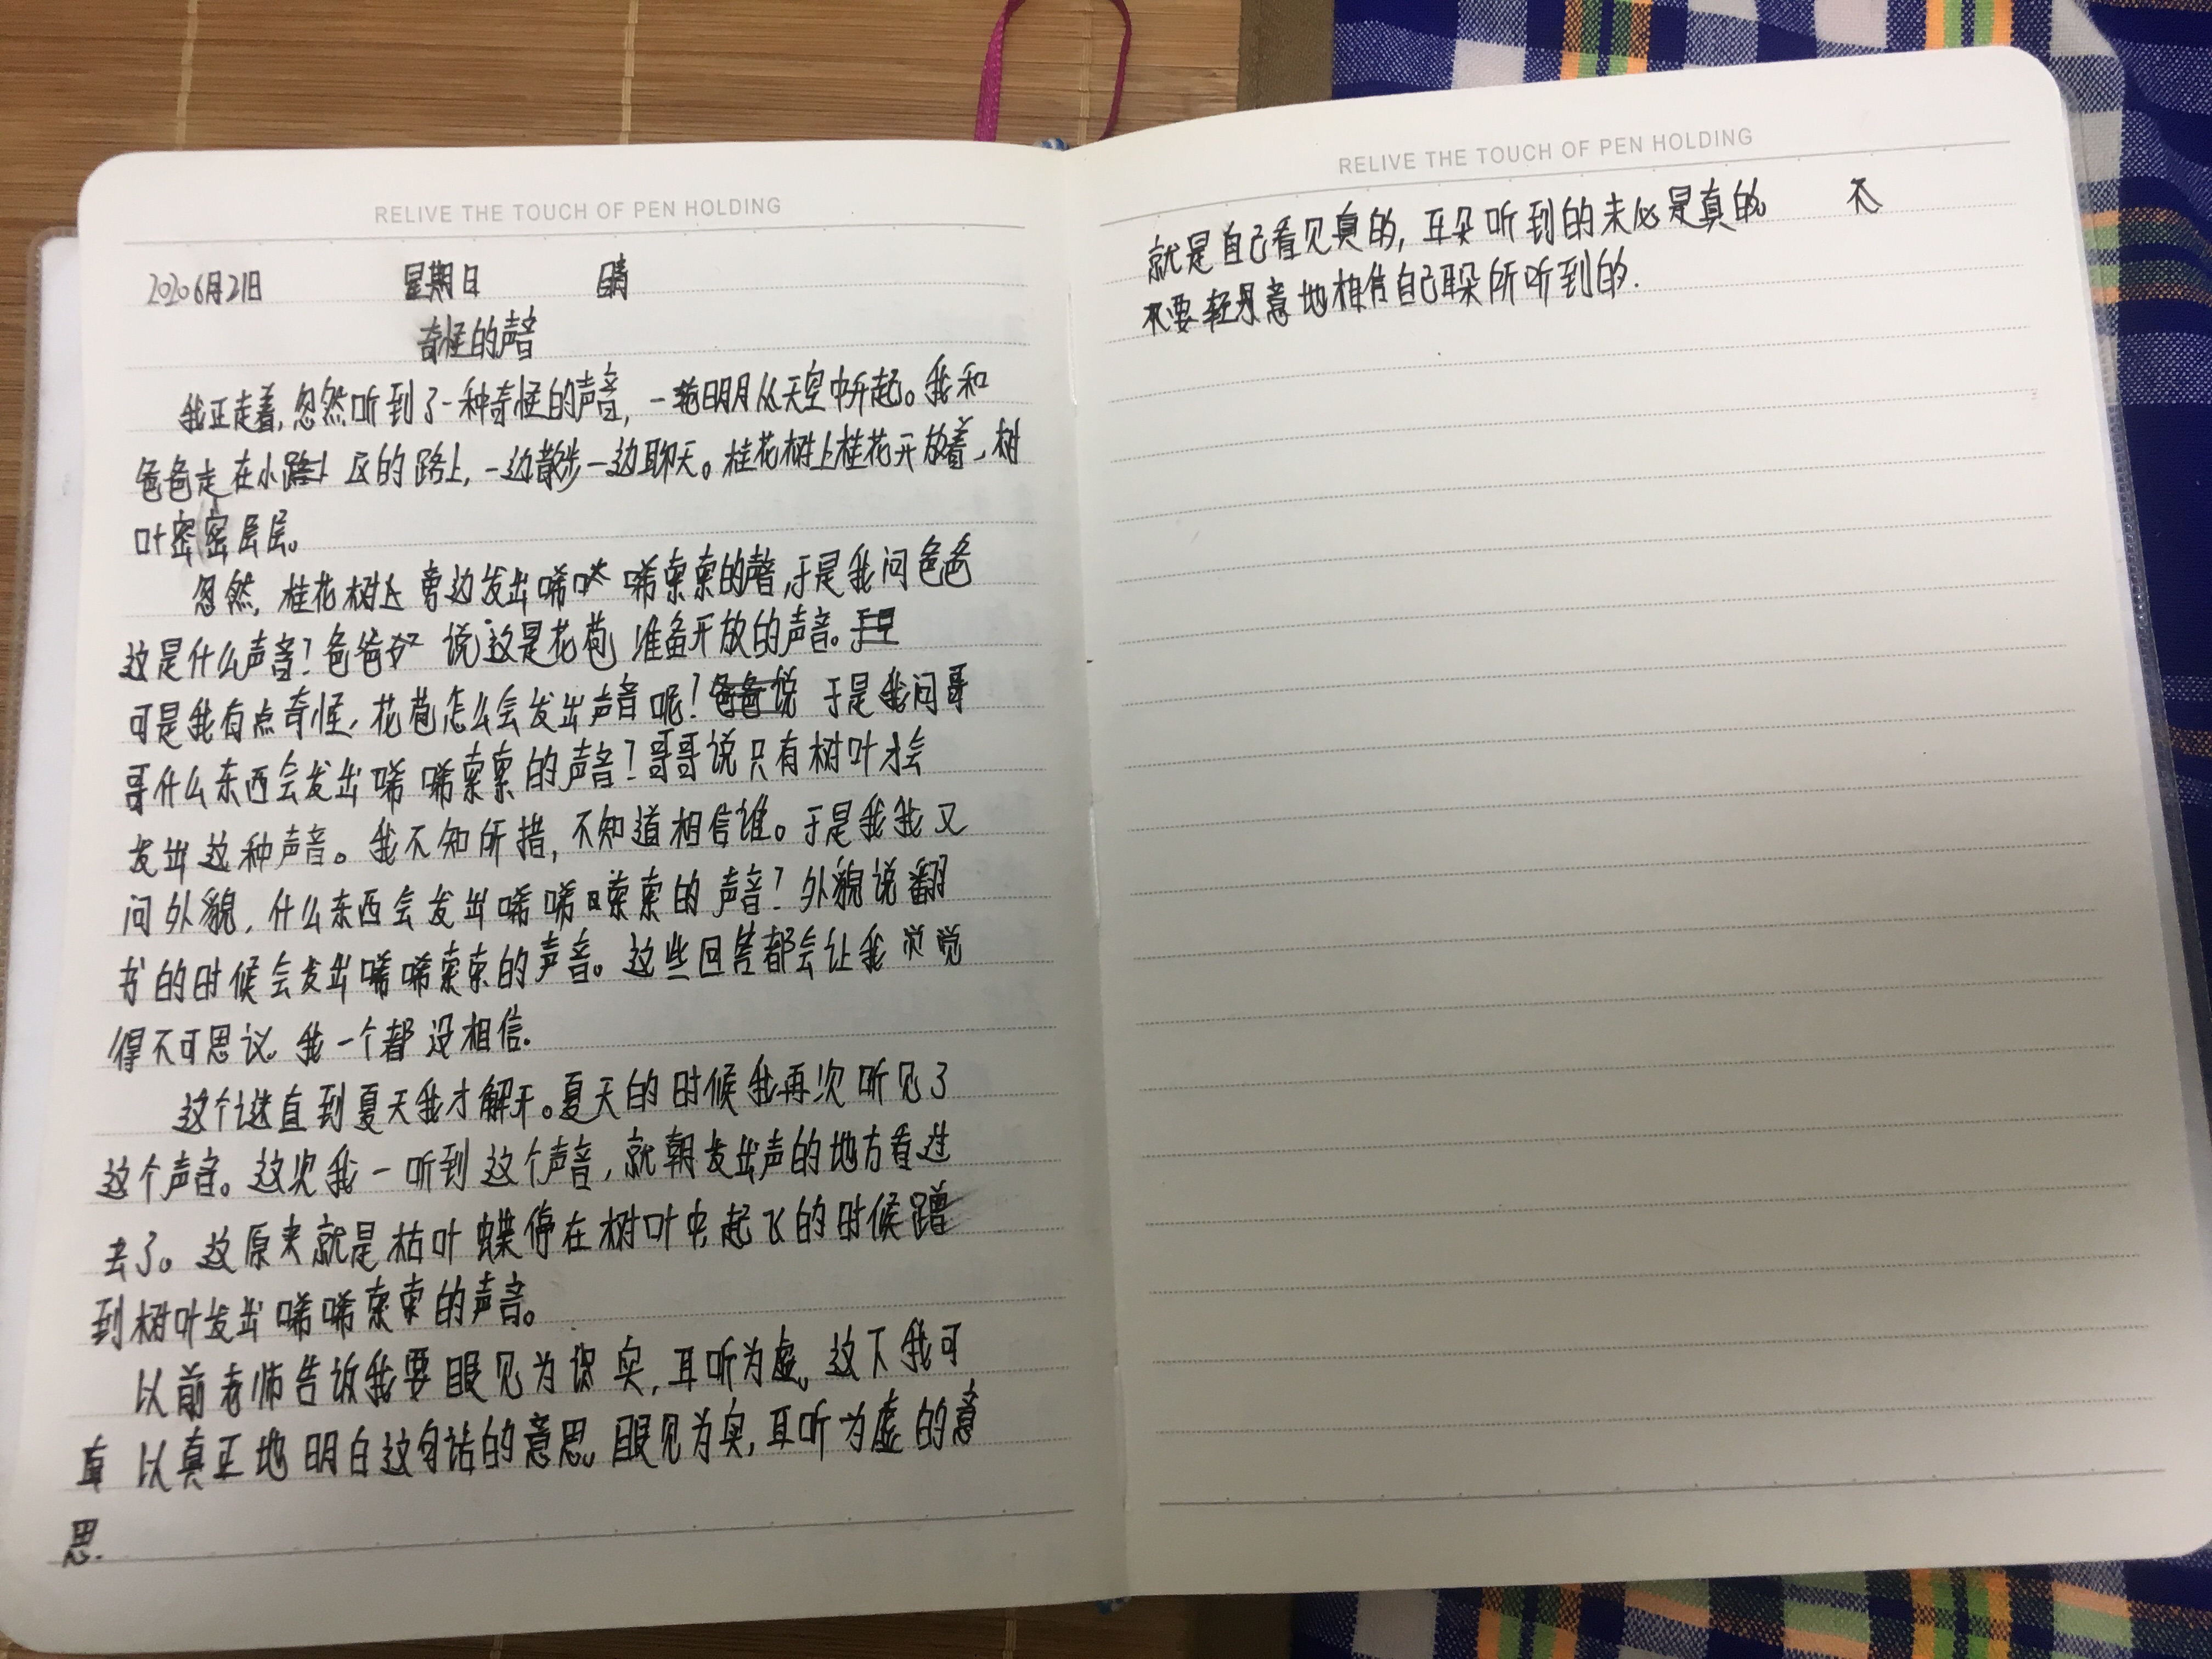 RELIVE THE TOUCH OF PEN HOLDING
2020 6月21日 星期日 晴
奇怪的声音
我正走着,忽然听到了一种奇怪的声音,一轮明月从天空中升起。我和
爸爸走在小区的路上,一边散步一边聊天。桂花树上桂花开放着,树
叶密密层层。
忽然,桂花树旁边发出唏唏索索的声音,于是我问爸爸
这是什么声音?爸爸说这是花苞准备开放的声音。
可是我有点奇怪,花苞怎么会发出声音呢?于是我问哥
哥什么东西会发出唏唏索索的声音?哥哥说只有树叶才会
发出这种声音。我不知所措,不知道相信谁。于是我我又
问外貌,什么东西会发出唏唏嗦索的声音?外貌说翻
书的时候会发出唏唏索索的声音。这些回答都会让我觉
得不可思议。我一个都没相信.
这个谜直到夏天我才解开。夏天的时候我再次听见了
这个声音。这次我一听到这个声音,就朝发出声的地方看过
去了。这原来就是枯叶蝶停在树叶中,起飞的时候蹭
到树叶发出唏唏索索的声音。
以前老师告诉我要眼见为实,耳听为虚。这下我可
以真正地明白这句话的意思。眼见为实,耳听为虚的意
思.
RELIVE THE TOUCH OF PEN HOLDING
就是自己看见真的,耳朵听到的未必是真的。 不
要轻易意地相信自己耳朵所听到的.